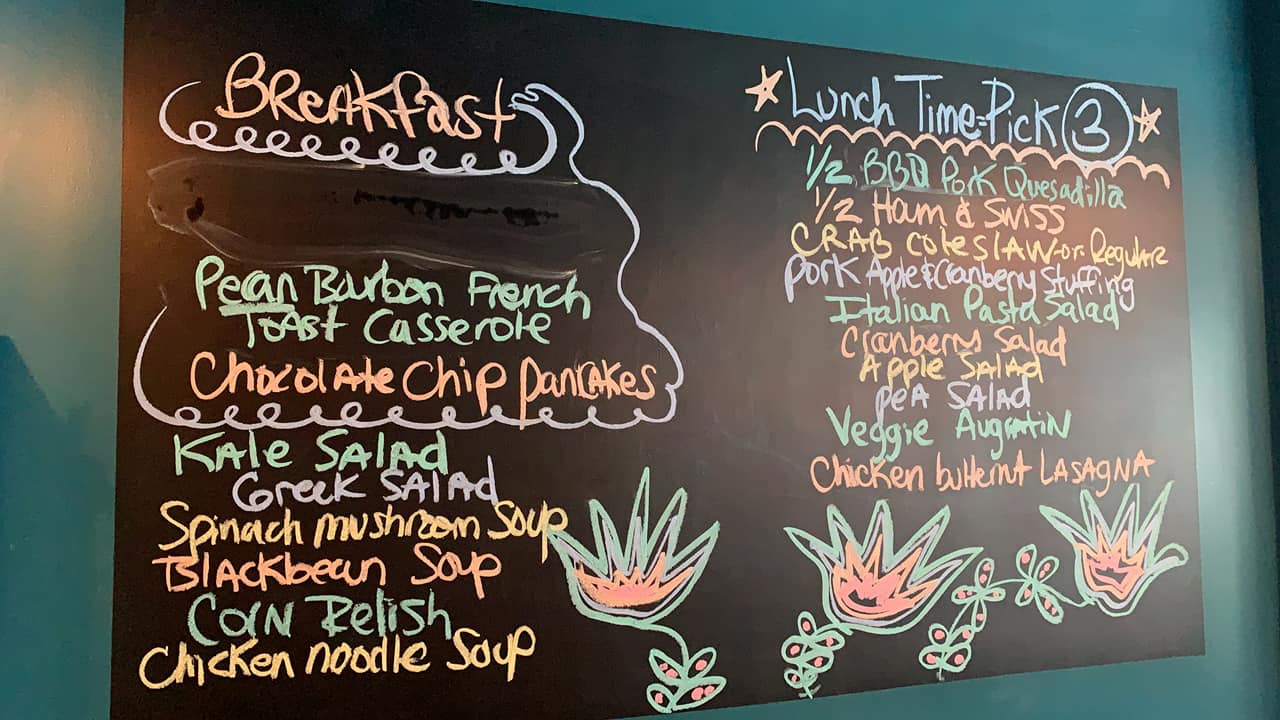 BReakfast
Pecan Bourbon French
Toast Casserole
Chocolate Chip pancakes
Kale Salad
Greek Salad
Spinach mushroom Soup
Blackbean Soup
Corn Relish
Chicken noodle Soup
Lunch Time-Pick 3
1/2 BBQ Pork Quesadilla
1/2 Ham & Swiss
CRAB coleslaw or Regular
pork Apple & Cranberry Stuffing
Italian Pasta Salad
Cranberry Salad
Apple Salad
pea Salad
Veggie Augratin
Chicken butternut Lasagna